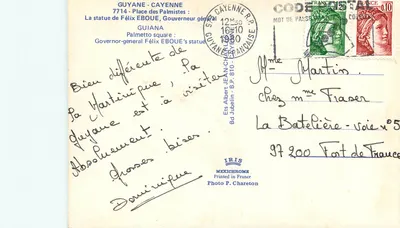 GUYANE - CAYENNE
7714 - Place des Palmistes :
La statue de Félix EBOUE, Gouverneur général
GUIANA
Palmetto square :
Governor-general Félix EBOUE's statue
Bien différente de
la Martinique, la
Guyane est à visiter
Absolument.
Grosses bises.
Dominique
CAYENNE R.P.
16-10
1980
GUYANE FRANÇAISE
CODE POSTAL
MOT DE PASSE
0,10
Mme Martin.
chez Mme Fraser
La Batelière - voie n°5
97200 Fort de France
IRIS
MEXICHROME
Printed in France
Photo F. Chareton